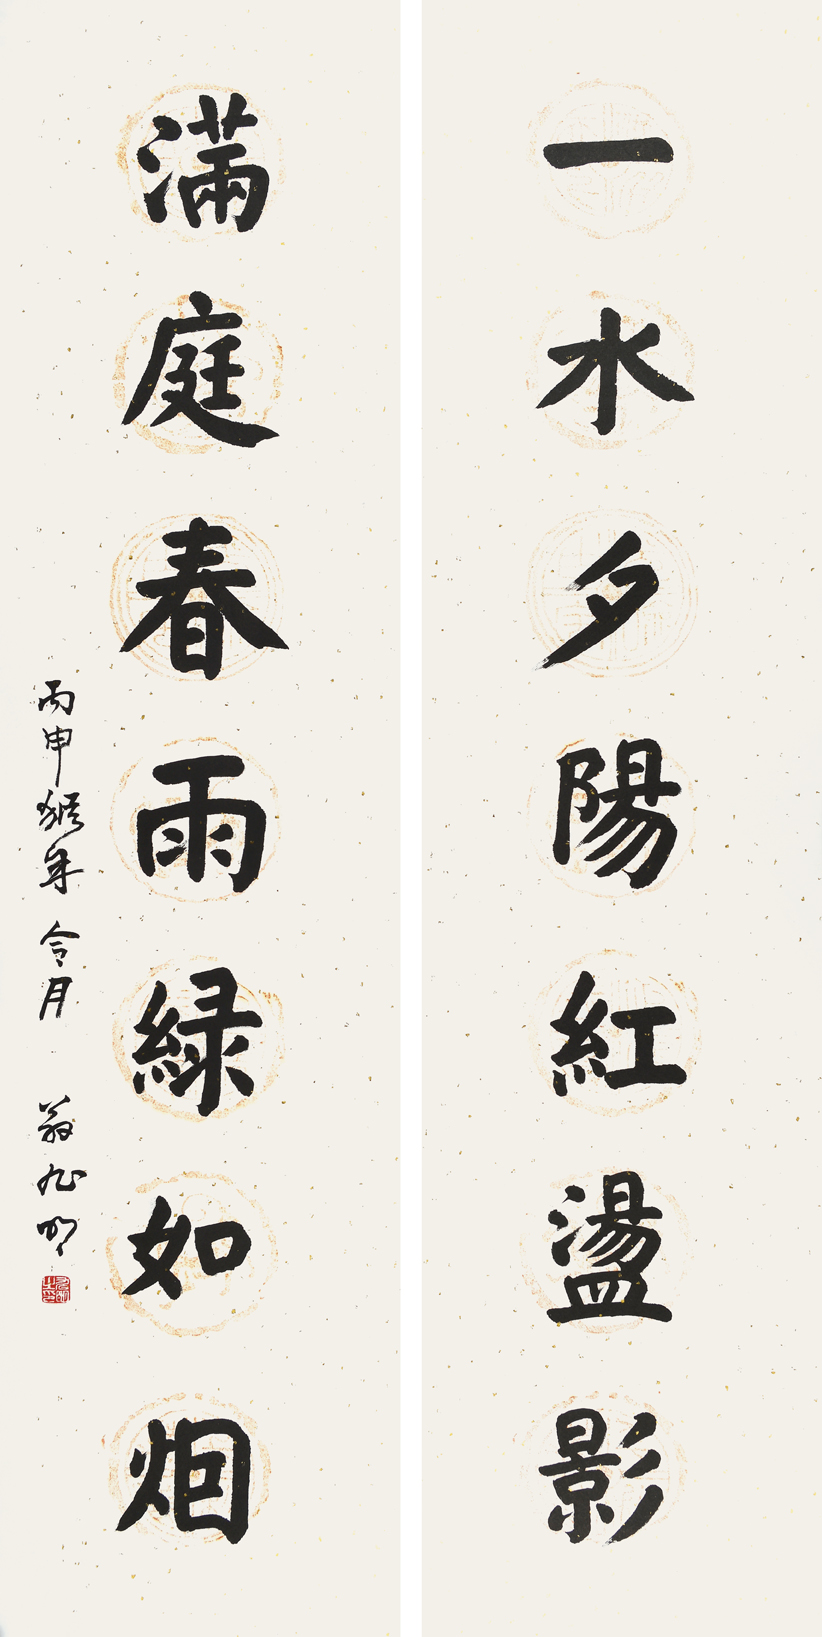 一水夕陽紅盪影
滿庭春雨緑如烟
丙申猴年 令月 翁旭明